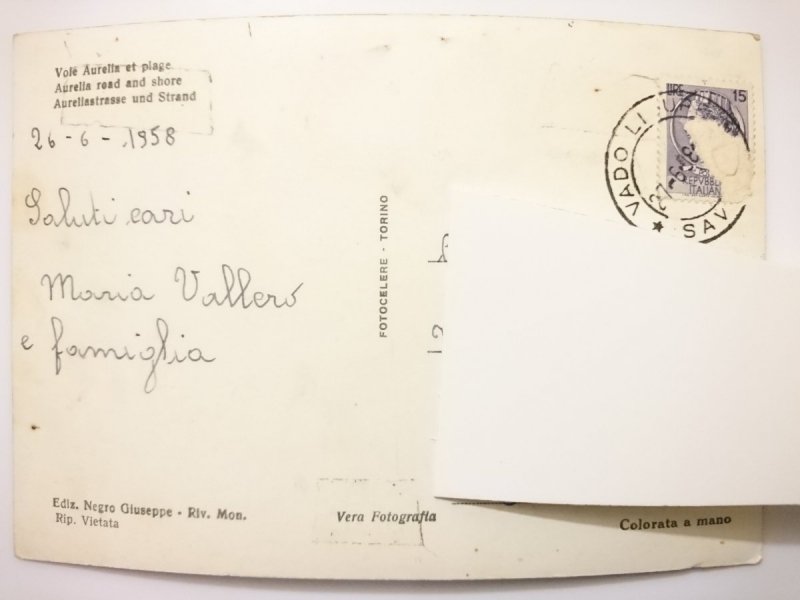 Voie Aurelia et plage
Aurelia road and shore
Aureliastrasse und Strand
26-6-1958
Saluti cari
Maria Vallero
e famiglia
FOTOCELERE - TORINO
LIRE 15
REPVBBLICA
ITALIANA
VADO LIGURE
SAV
Ediz. Negro Giuseppe - Riv. Mon.
Rip. Vietata
Vera Fotografia
Colorata a mano